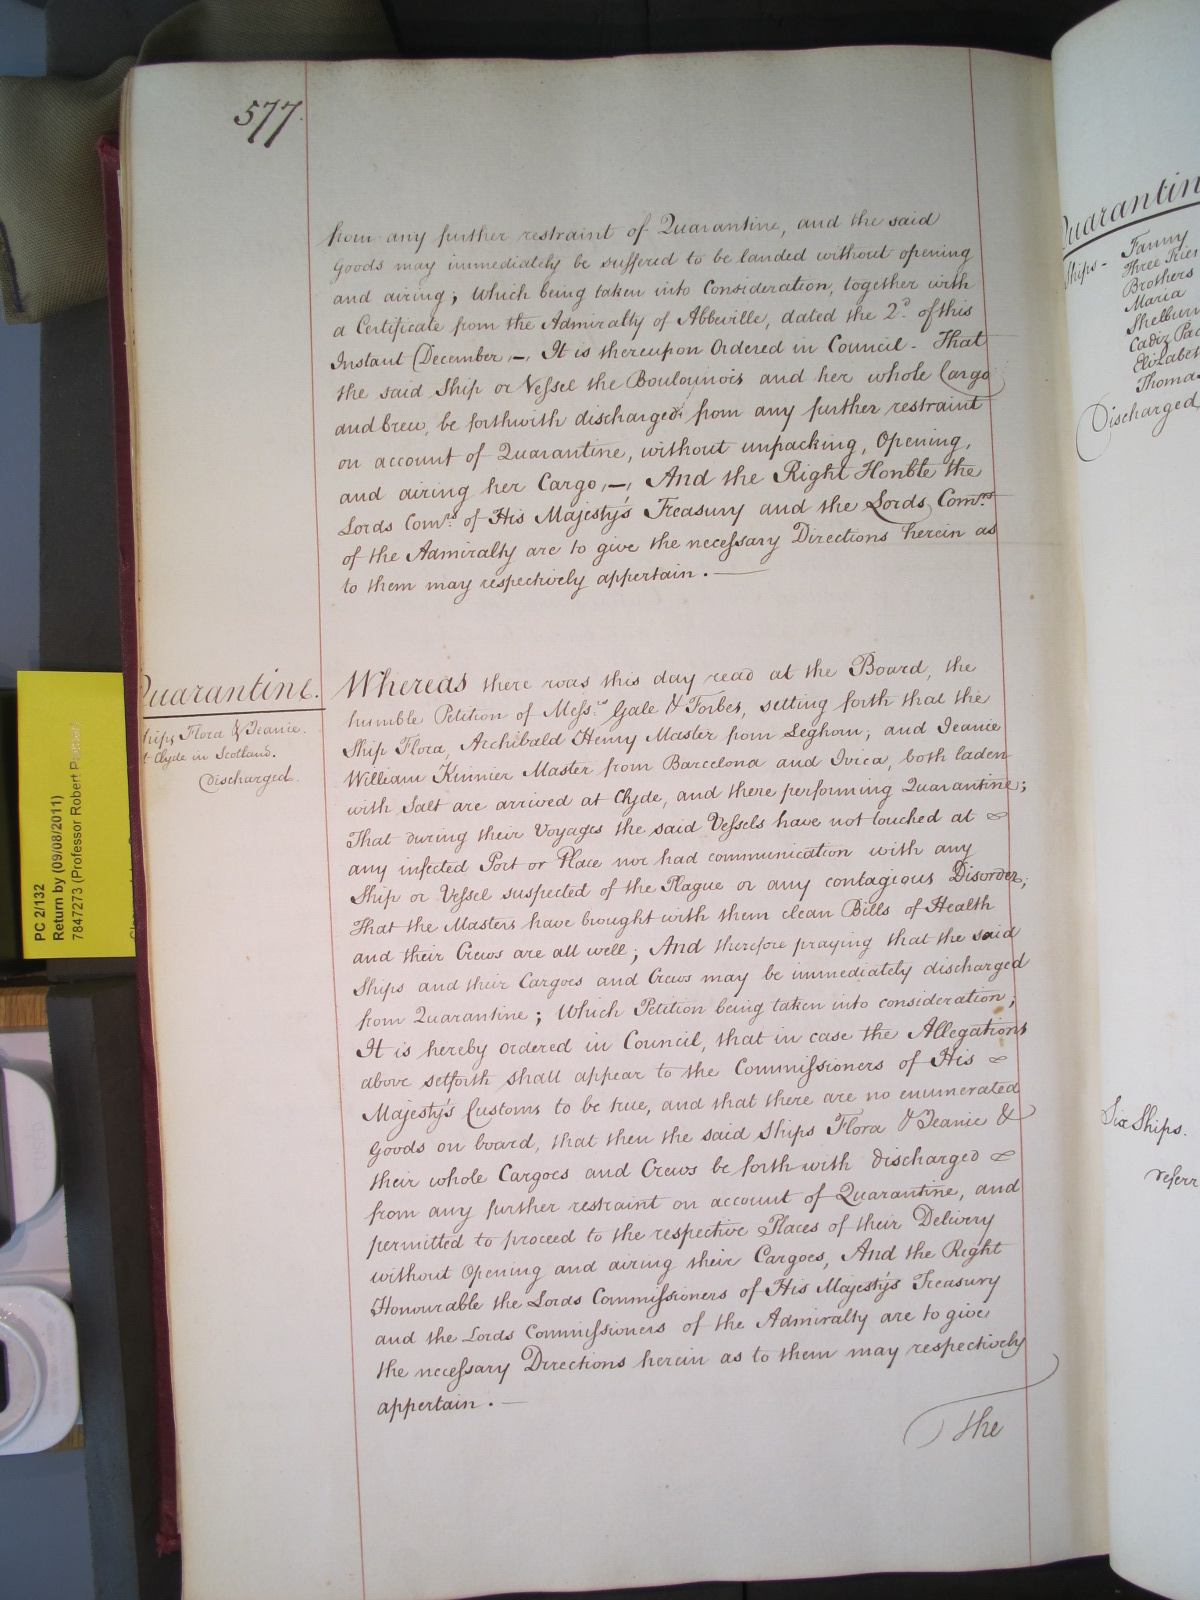 577
from any further restraint of Quarantine, and the said
Goods may immediately be suffered to be landed without opening
and airing; Which being taken into Consideration, together with
a Certificate from the Admiralty of Abbeville, dated the 2d. of this
Instant December,—, It is thereupon Ordered in Council - That
the said Ship or Vessel the Boulounois and her whole Cargo
and Crew, be forthwith discharged, from any further restraint
on account of Quarantine, without unpacking, Opening,
and airing her Cargo,—, And the Right Honble the
Lords Comrs. of His Majesty's Treasury and the Lords Comrs.
of the Admiralty are to give the necessary Directions herein as
to them may respectively appertain. —
Quarantine.
Ships Flora & Jeanie.
at Clyde in Scotland.
Discharged.
Whereas there was this day read at the Board, the
humble Petition of Messrs. Gale & Forbes, setting forth that the
Ship Flora, Archibald Henry Master from Leghorn; and Jeanie
William Kinnier Master from Barcelona and Ivica, both laden
with Salt are arrived at Clyde, and there performing Quarantine;
That during their Voyages the said Vessels have not touched at
any infected Port or Place nor had communication with any
Ship or Vessel suspected of the Plague or any contagious Disorder;
That the Masters have brought with them clean Bills of Health
and their Crews are all well; And therefore praying that the said
Ships and their Cargoes and Crews may be immediately discharged
from Quarantine; Which Petition being taken into consideration;
It is hereby ordered in Council, that in case the Allegations
above setforth shall appear to the Commissioners of His
Majesty's Customs to be true, and that there are no enumerated
Goods on board, that then the said Ships Flora & Jeanie &
their whole Cargoes and Crews be forth-with discharged
from any further restraint on account of Quarantine, and
permitted to proceed to the respective Places of their Delivery
without Opening and airing their Cargoes, And the Right
Honourable the Lords Commissioners of His Majesty's Treasury
and the Lords Commissioners of the Admiralty are to give
the necessary Directions herein as to them may respectively
appertain. —
The
PC 2/132
Return by (09/08/2011)
7847273 (Professor Robert
Quarantin
Ships - Fanny
Three
Brothers
Maria
Shelburn
Cadiz Pac
Elizabet
Thomas
Discharged
Six Ships.
referr